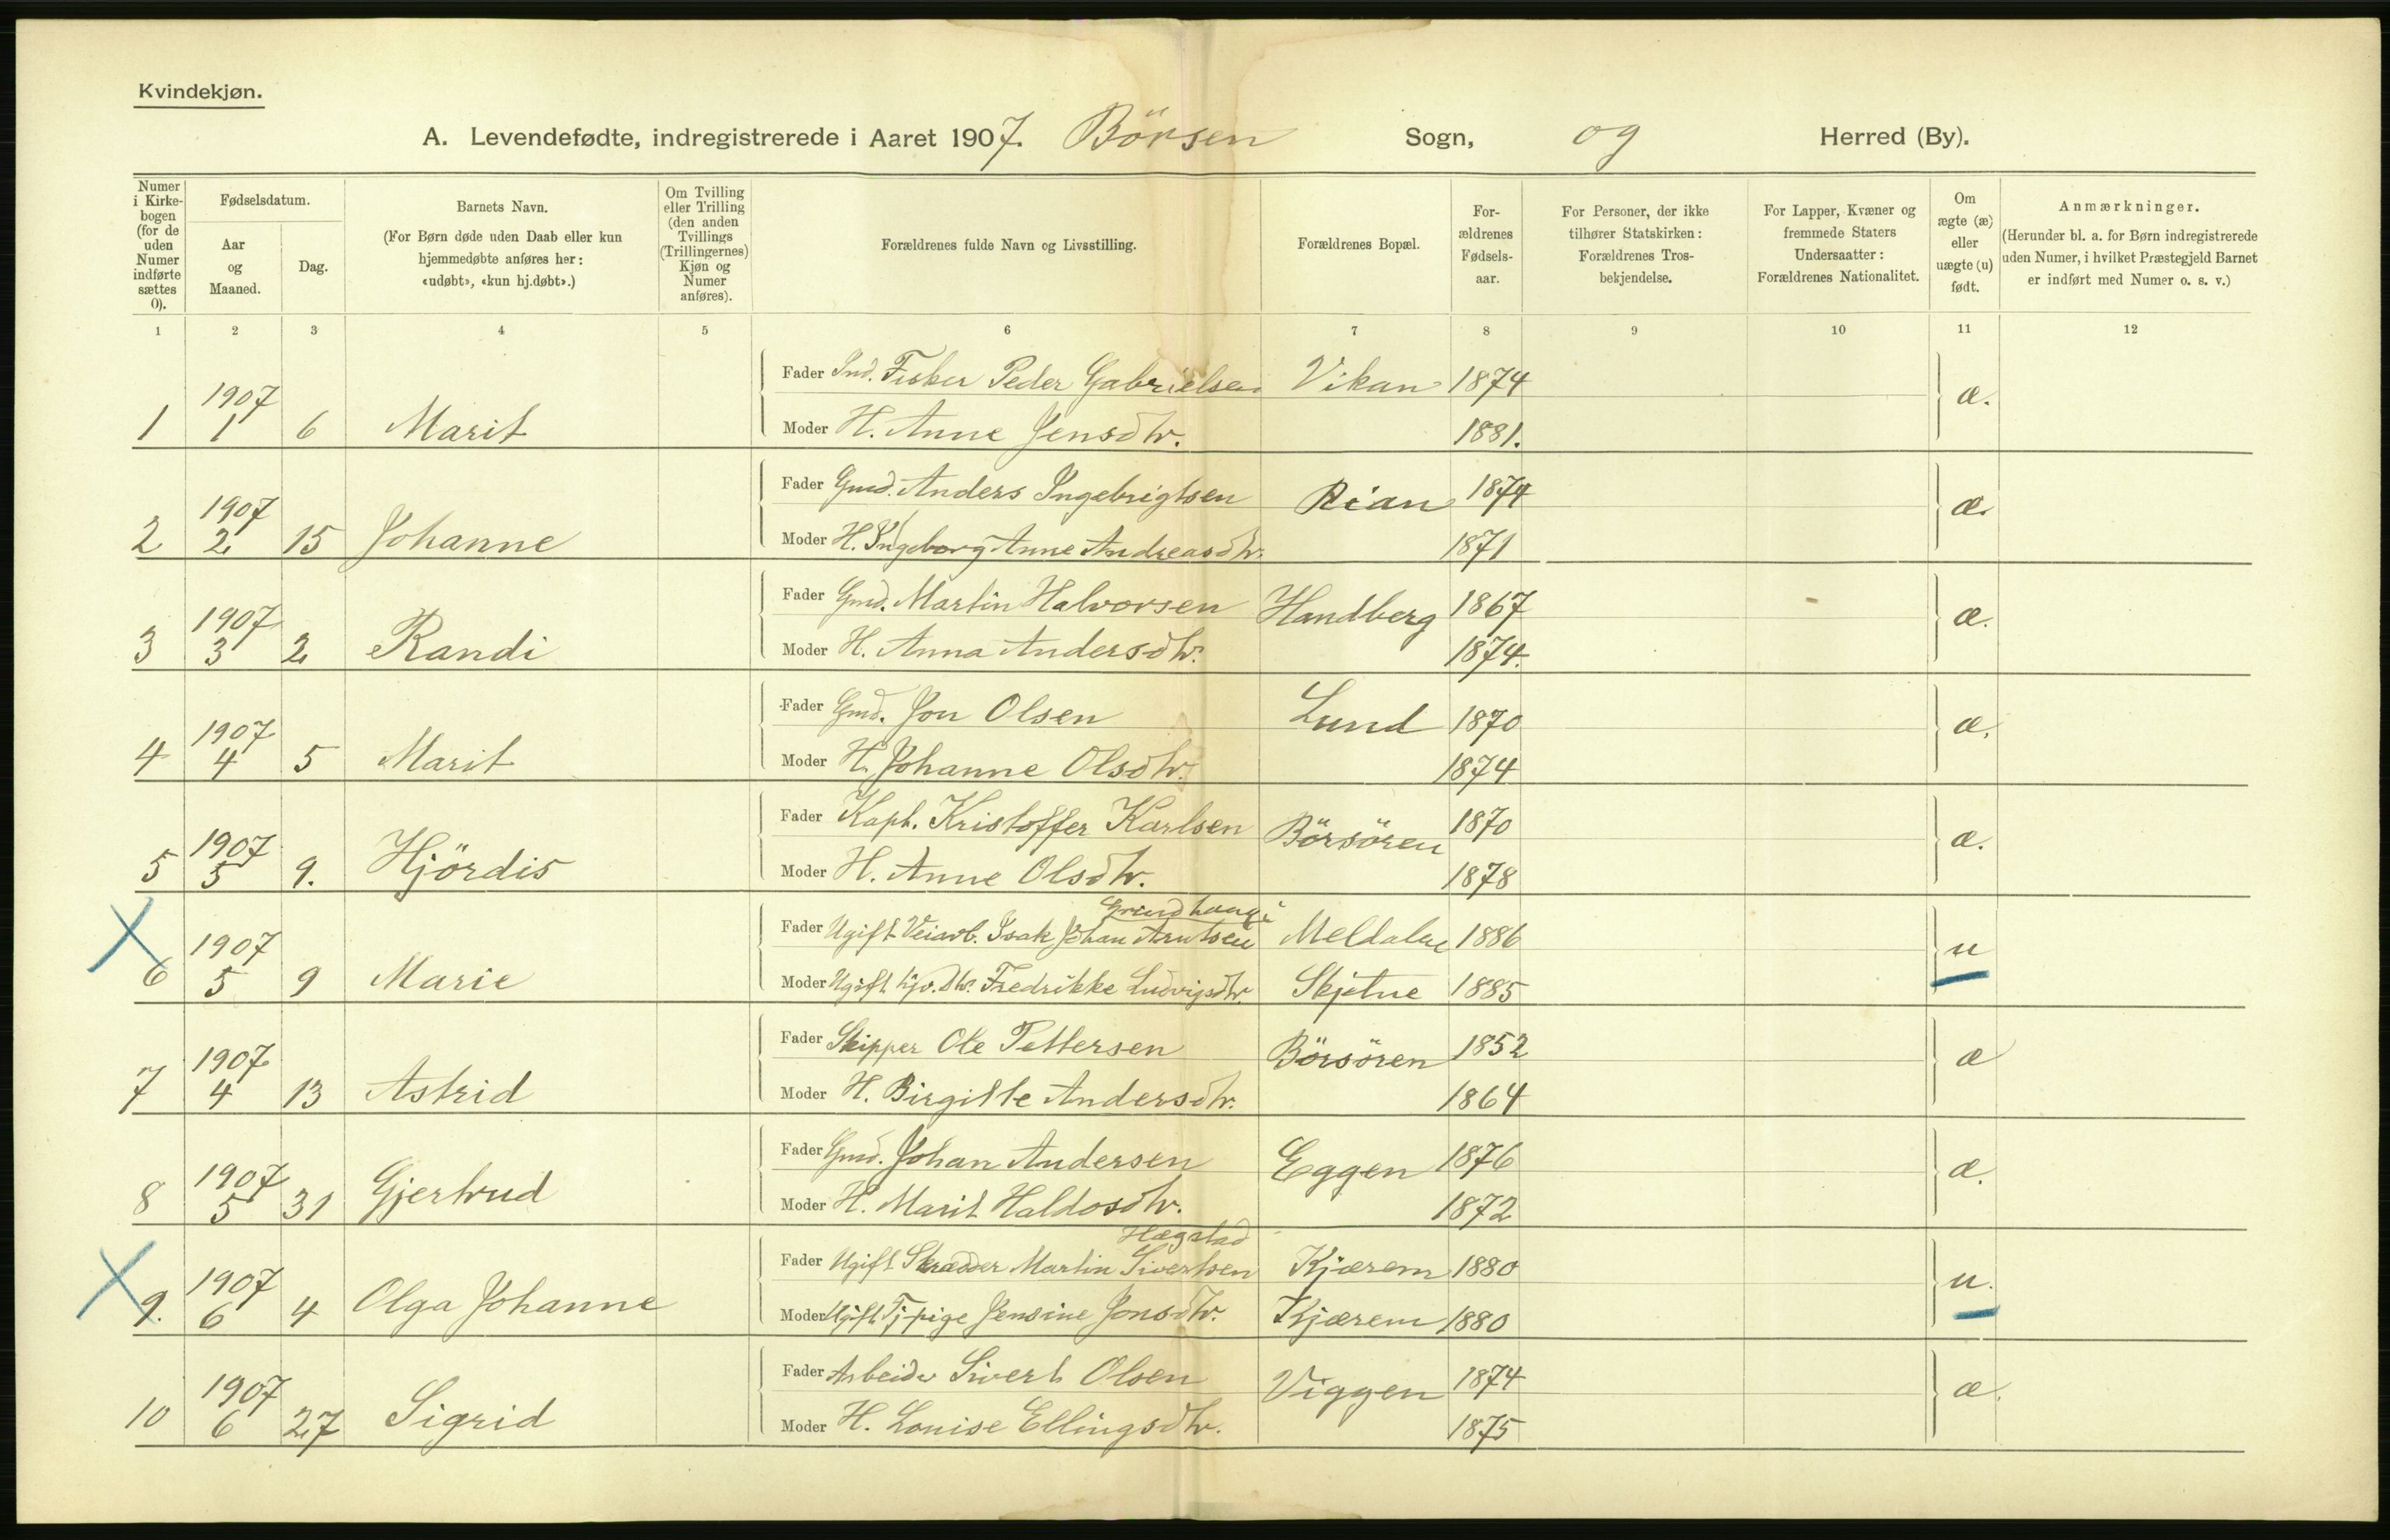 Kvindekjøn.
A. Levendefødte, indregistrerede i Aaret 1907. Börsen Sogn, og Herred (By).
Numer i Kirke-bogen (for de uden Numer indførte sættes 0).
Fødselsdatum.
Aar og Maaned.
Dag.
Barnets Navn.
(For Børn døde uden Daab eller kun hjemmedøbte anføres her: «udøbt», «kun hj.døbt».)
Om Tvilling eller Trilling (den anden Tvillings (Trillingernes) Kjøn og Numer anføres).
Forældrenes fulde Navn og Livsstilling.
Forældrenes Bopæl.
For-ældrenes Fødsels-aar.
For Personer, der ikke tilhører Statskirken: Forældrenes Tros-bekjendelse.
For Lapper, Kvæner og fremmede Staters Undersaatter: Forældrenes Nationalitet.
Om ægte (æ) eller uægte (u) født.
Anmærkninger.
(Herunder bl. a. for Børn indregistrerede uden Numer, i hvilket Præstegjeld Barnet er indført med Numer o. s. v.)
1 2 3 4 5 6 7 8 9 10 11 12
Fader Ind. Fisker Peder Gabrielsen Vikan 1874
1 1907 1 6 Marit æ.
Moder H. Anne Jensdtr. 1881.
Fader Gmd. Anders Ingebrigtsen Rian 1874
2 1907 2 15 Johanne æ.
Moder H. Ingeborg Anne Andreasdtr. 1871
Fader Gmd. Martin Halvorsen Handberg 1867
3 1907 3 2 Randi æ.
Moder H. Anna Andersdtr. 1874.
Fader Gmd. Jon Olsen Lund 1870
4 1907 4 5 Marit æ.
Moder H. Johanne Olsdtr. 1874
Fader Kapt. Kristoffer Karlsen Börsören 1870
5 1907 5 9. Hjördis æ.
Moder H. Anne Olsdtr. 1878
Fader Ugift Veiarb. Isak Johan Arntsen Meldalen 1886
6 1907 5 9 Marie u
Moder Ugift Gjv. Dtr. Fredrikke Ludvigsdtr Skjetne 1885
Fader Skipper Ole Pettersen Börsören 1852
7 1907 4 13 Astrid æ
Moder H. Birgitte Andersdtr. 1864
Fader Gmd. Johan Andersen Eggen 1876
8 1907 5 31 Gjertrud æ.
Moder H. Marit Haldosdtr. 1872
Hægstad
Fader Ugift Skrædder Martin Sivertsen Kjærem 1880
9. 1907 6 4 Olga Johanne u.
Moder Ugift Tj.pige Jensine Jonsdtr. Kjærem 1880
Fader Arbeider Sivert Olsen Viggen 1874
10 1907 6 27 Sigrid æ.
Moder H. Louise Ellingsdtr. 1875